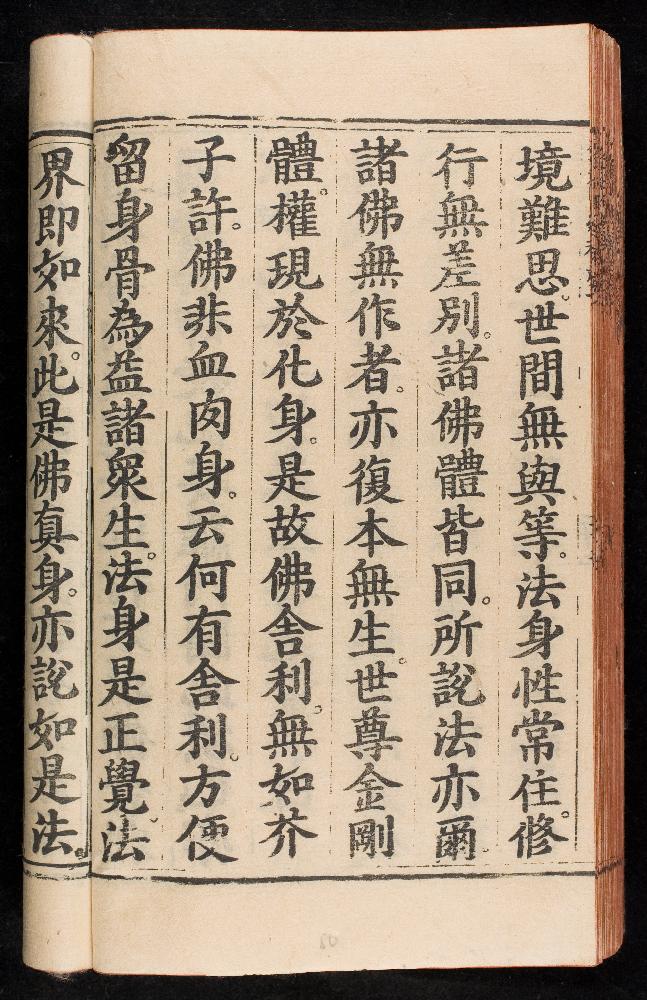 境難思。世間無與等。法身性常住。修
行無差別。諸佛體皆同。所說法亦爾
諸佛無作者。亦復本無生。世尊金剛
體。權現於化身。是故佛舍利。無如芥
子許。佛非血肉身。云何有舍利。方便
留身骨為益諸眾生。法身是正覺。法
界即如來。此是佛真身。亦說如是法。